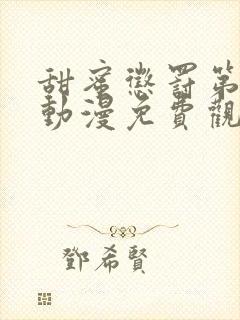 甜蜜懲罰第
動漫免費觀
鄧希賢